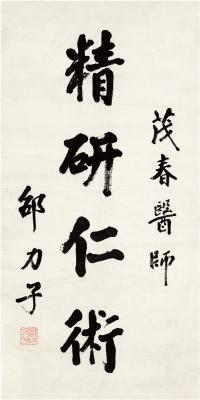 茂春醫師
精研仁術
邵力子